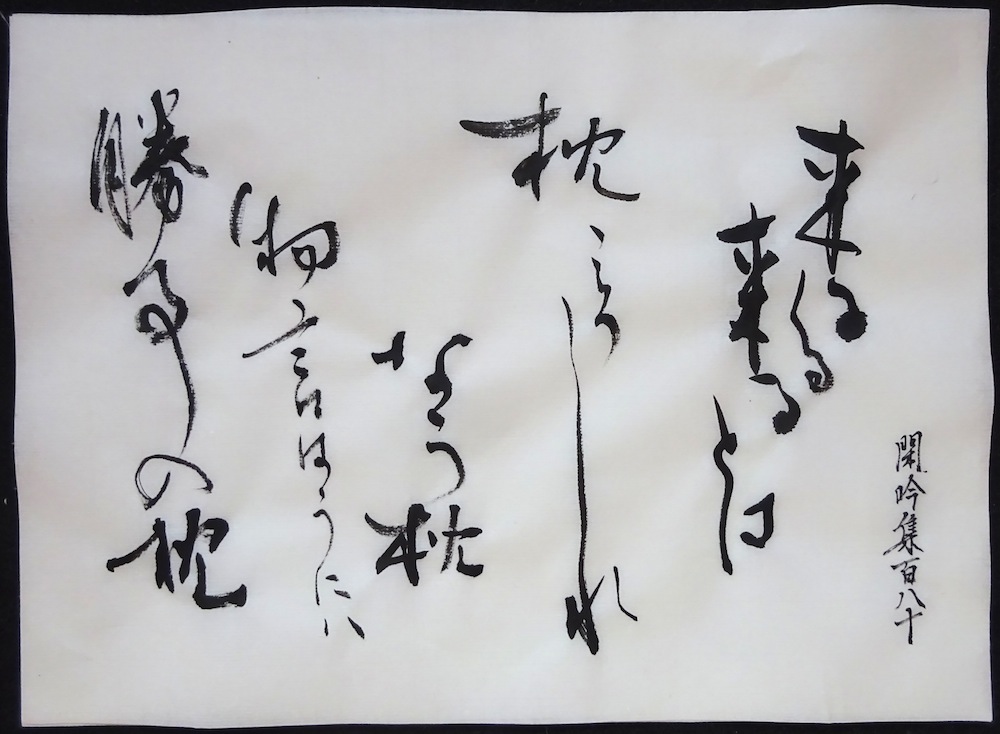 閑吟集百八十
来るくる
来るとは
枕こそしれ
なう枕
物言はうには
勝事の枕